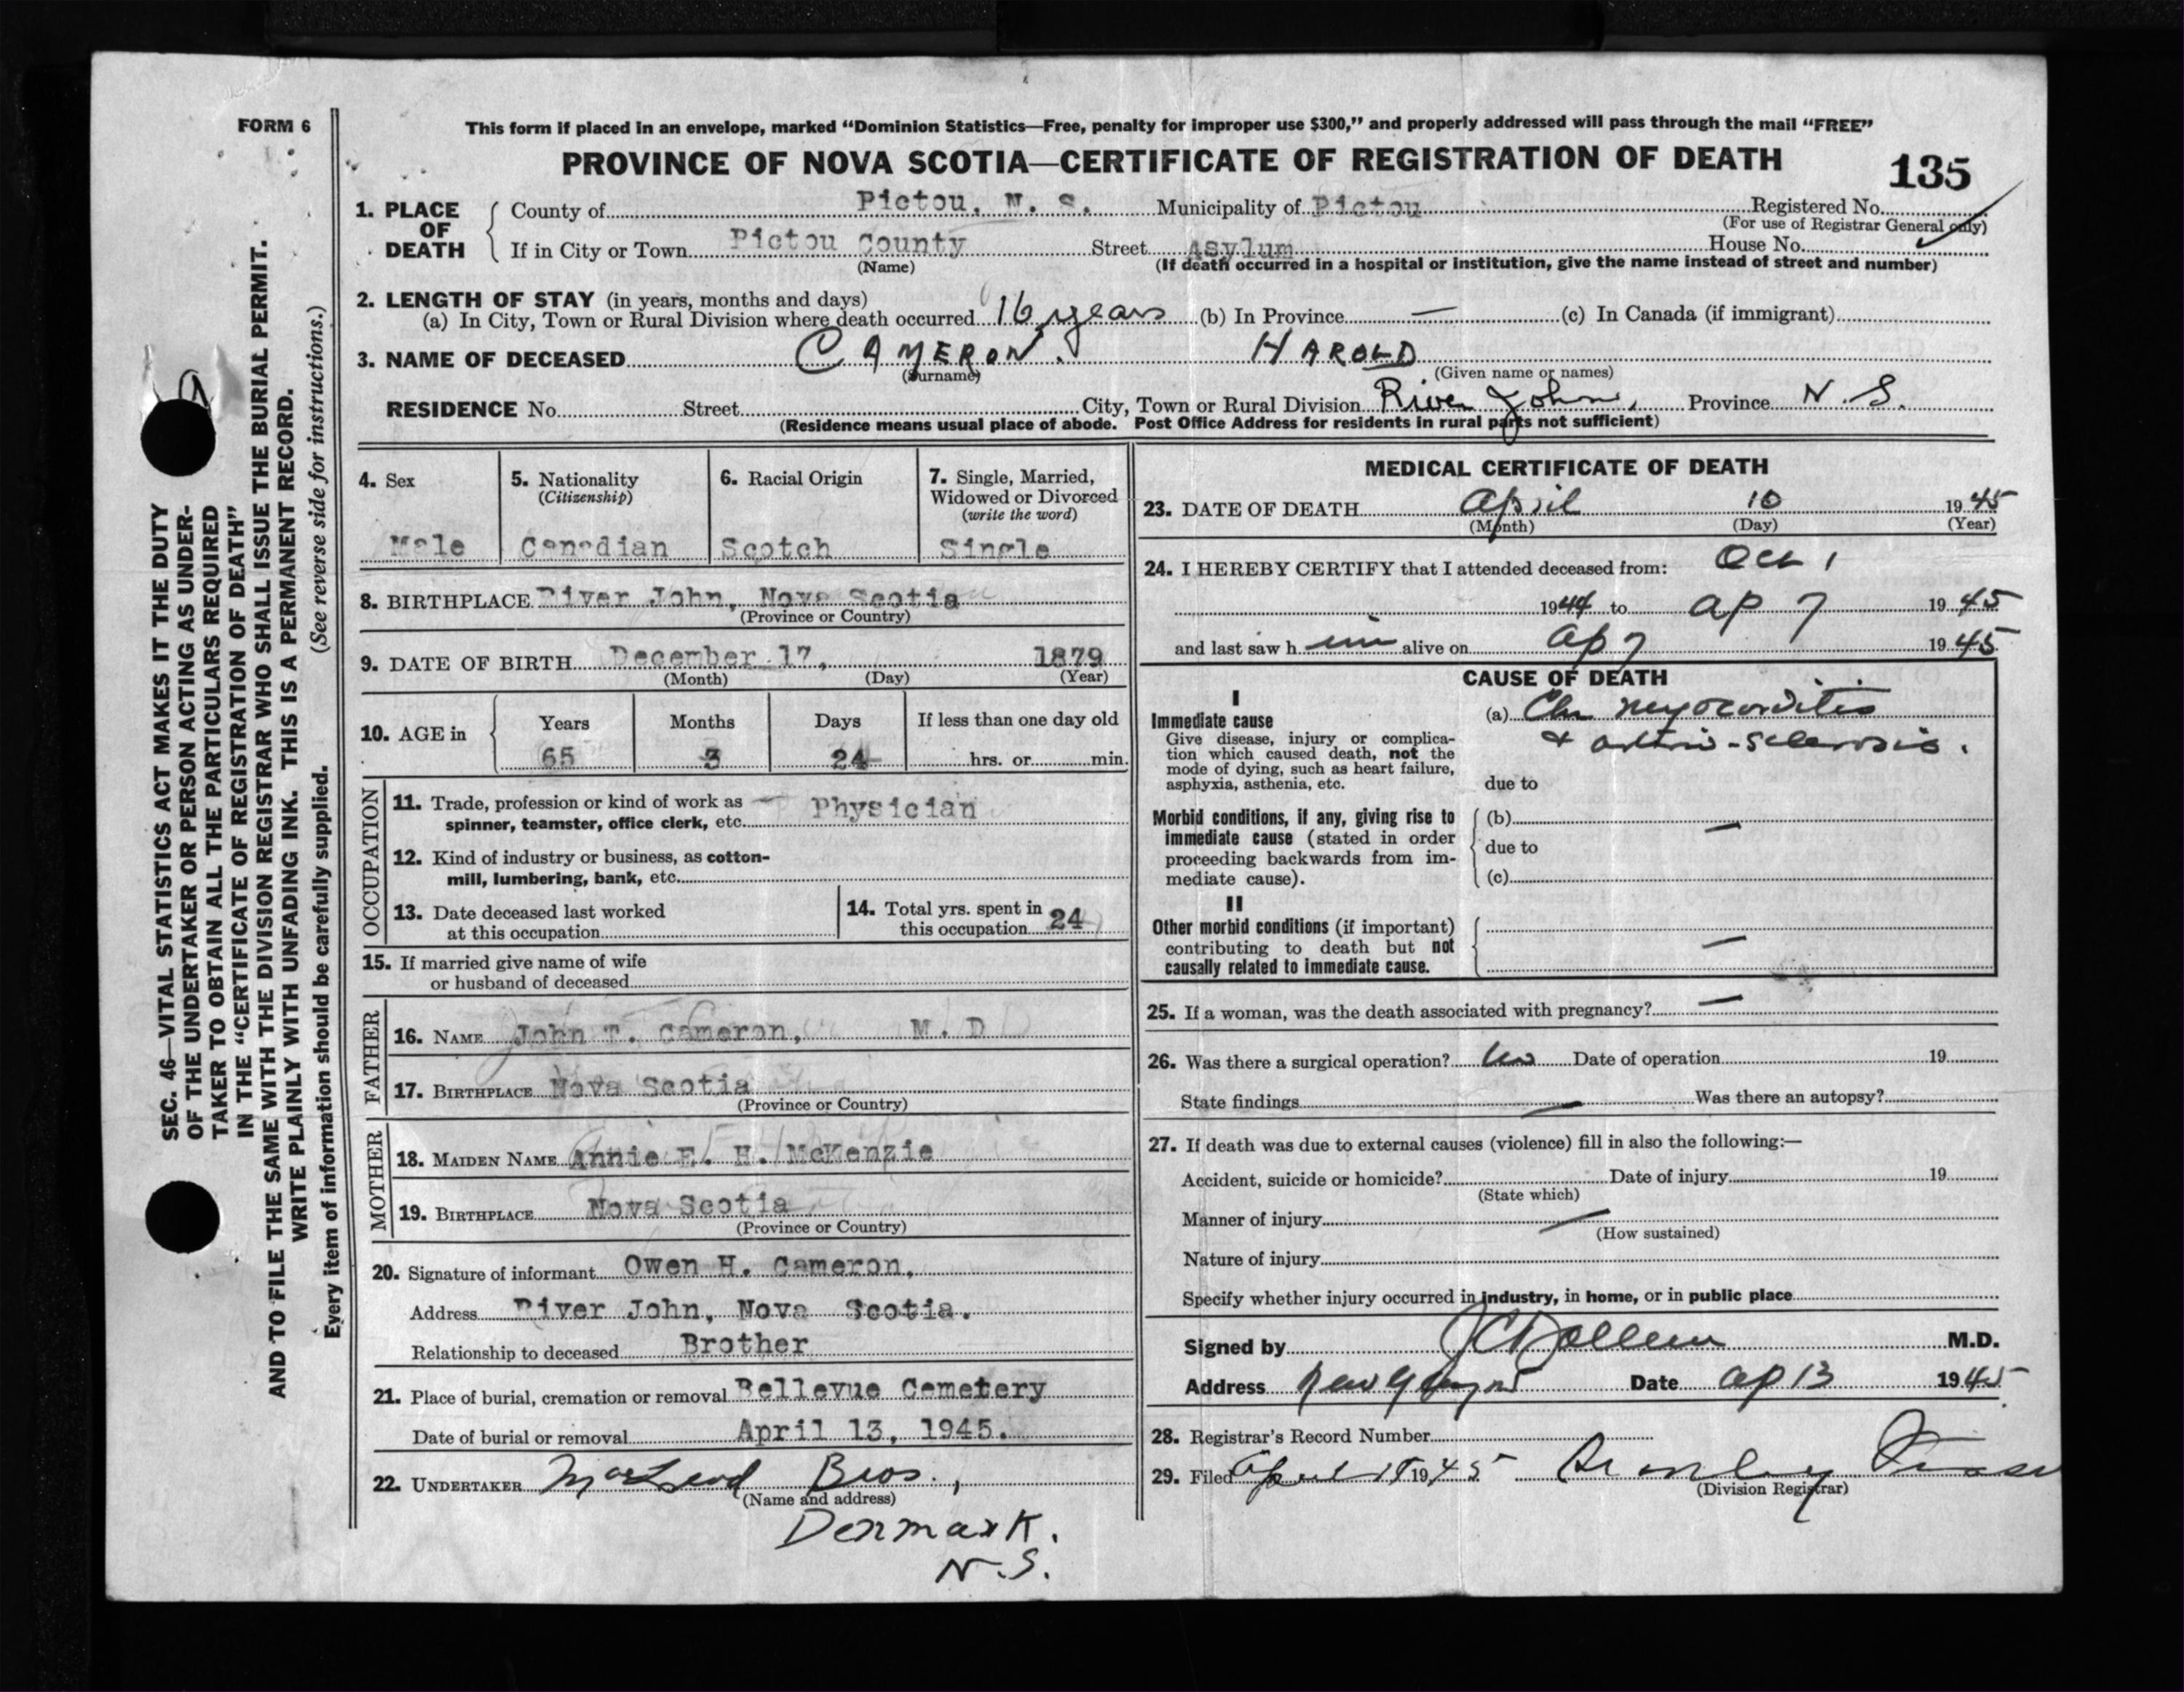 FORM 6
This form if placed in an envelope, marked “Dominion Statistics—Free, penalty for improper use $300,” and properly addressed will pass through the mail “FREE”
PROVINCE OF NOVA SCOTIA—CERTIFICATE OF REGISTRATION OF DEATH
135
1. PLACE OF DEATH
County of Pictou, N. S. Municipality of Pictou Registered No.
(For use of Registrar General only)
If in City or Town Pictou County Street Asylum House No.
(Name) (If death occurred in a hospital or institution, give the name instead of street and number)
2. LENGTH OF STAY (in years, months and days)
(a) In City, Town or Rural Division where death occurred 16 years (b) In Province — (c) In Canada (if immigrant)
3. NAME OF DECEASED CAMERON. HAROLD
(Surname) (Given name or names)
RESIDENCE No. Street City, Town or Rural Division River John, Province N. S.
(Residence means usual place of abode. Post Office Address for residents in rural parts not sufficient)
4. Sex
Male
5. Nationality
(Citizenship)
Canadian
6. Racial Origin
Scotch
7. Single, Married,
Widowed or Divorced
(write the word)
Single
8. BIRTHPLACE River John, Nova Scotia
(Province or Country)
9. DATE OF BIRTH December 17, 1879
(Month) (Day) (Year)
10. AGE in
Years Months Days If less than one day old
65 3 24 hrs. or min.
OCCUPATION
11. Trade, profession or kind of work as
spinner, teamster, office clerk, etc. Physician
12. Kind of industry or business, as cotton-
mill, lumbering, bank, etc.
13. Date deceased last worked
at this occupation
14. Total yrs. spent in
this occupation 24
15. If married give name of wife
or husband of deceased
FATHER
16. NAME John T. Cameron, M. D
17. BIRTHPLACE Nova Scotia
(Province or Country)
MOTHER
18. MAIDEN NAME Annie E. H. McKenzie
19. BIRTHPLACE Nova Scotia
(Province or Country)
20. Signature of informant Owen H. Cameron,
Address River John, Nova Scotia.
Relationship to deceased Brother
21. Place of burial, cremation or removal Bellevue Cemetery
Date of burial or removal April 13, 1945.
22. UNDERTAKER MacLeod Bros.,
(Name and address)
Denmark.
N.S.
MEDICAL CERTIFICATE OF DEATH
23. DATE OF DEATH April 10 1945
(Month) (Day) (Year)
24. I HEREBY CERTIFY that I attended deceased from: Oct 1
1944 to Ap 7 1945
and last saw h im alive on Ap 7 1945
CAUSE OF DEATH
I
Immediate cause
Give disease, injury or complica-
tion which caused death, not the
mode of dying, such as heart failure,
asphyxia, asthenia, etc.
(a) Chr myocarditis
& arterio-sclerosis.
due to
Morbid conditions, if any, giving rise to
immediate cause (stated in order
proceeding backwards from im-
mediate cause).
(b) —
due to
(c)
II
Other morbid conditions (if important)
contributing to death but not
causally related to immediate cause.
—
25. If a woman, was the death associated with pregnancy? —
26. Was there a surgical operation? no Date of operation 19
State findings — Was there an autopsy?
27. If death was due to external causes (violence) fill in also the following:—
Accident, suicide or homicide? Date of injury 19
(State which)
Manner of injury —
(How sustained)
Nature of injury
Specify whether injury occurred in industry, in home, or in public place
Signed by M.D.
Address New Glasgow Date Ap 13 1945
28. Registrar's Record Number
29. Filed April 1945 Stanley Fraser
(Division Registrar)
SEC. 46—VITAL STATISTICS ACT MAKES IT THE DUTY
OF THE UNDERTAKER OR PERSON ACTING AS UNDER-
TAKER TO OBTAIN ALL THE PARTICULARS REQUIRED
IN THE “CERTIFICATE OF REGISTRATION OF DEATH”
AND TO FILE THE SAME WITH THE DIVISION REGISTRAR WHO SHALL ISSUE THE BURIAL PERMIT.
WRITE PLAINLY WITH UNFADING INK. THIS IS A PERMANENT RECORD.
Every item of information should be carefully supplied. (See reverse side for instructions.)